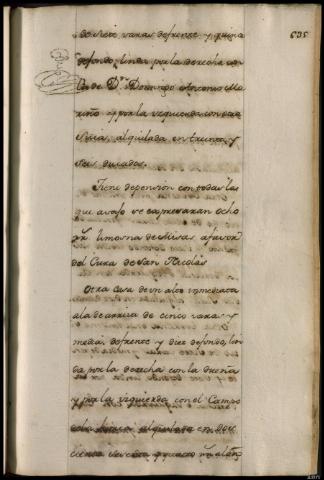 635
de siete varas de frente y quinze
de fondo, linda por la derecha con
de Dn. Domingo Antonio Ma
riño y por la izquierda con
alquilada en treinta y
seis ducados.
Tiene de pension con todas las
que avajo se expresaran ocho
rr. limosna de Misas a favor
del Cura de San Nicolás
Otra Casa de un alto inmediata
a la de arriva de cinco varas y
media, de frente y diez de fondo, lin
da por la derecha con la dueña
y por la izquierda con el Campo
de la alquilada en Dos
cientos sesenta y quatro rr. al año